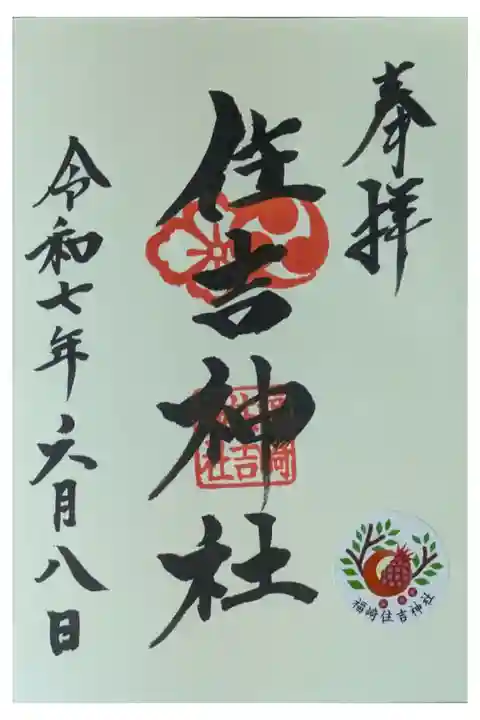 奉拝
住吉神社
福崎
住吉
神社
令和七年六月八日
福崎住吉神社